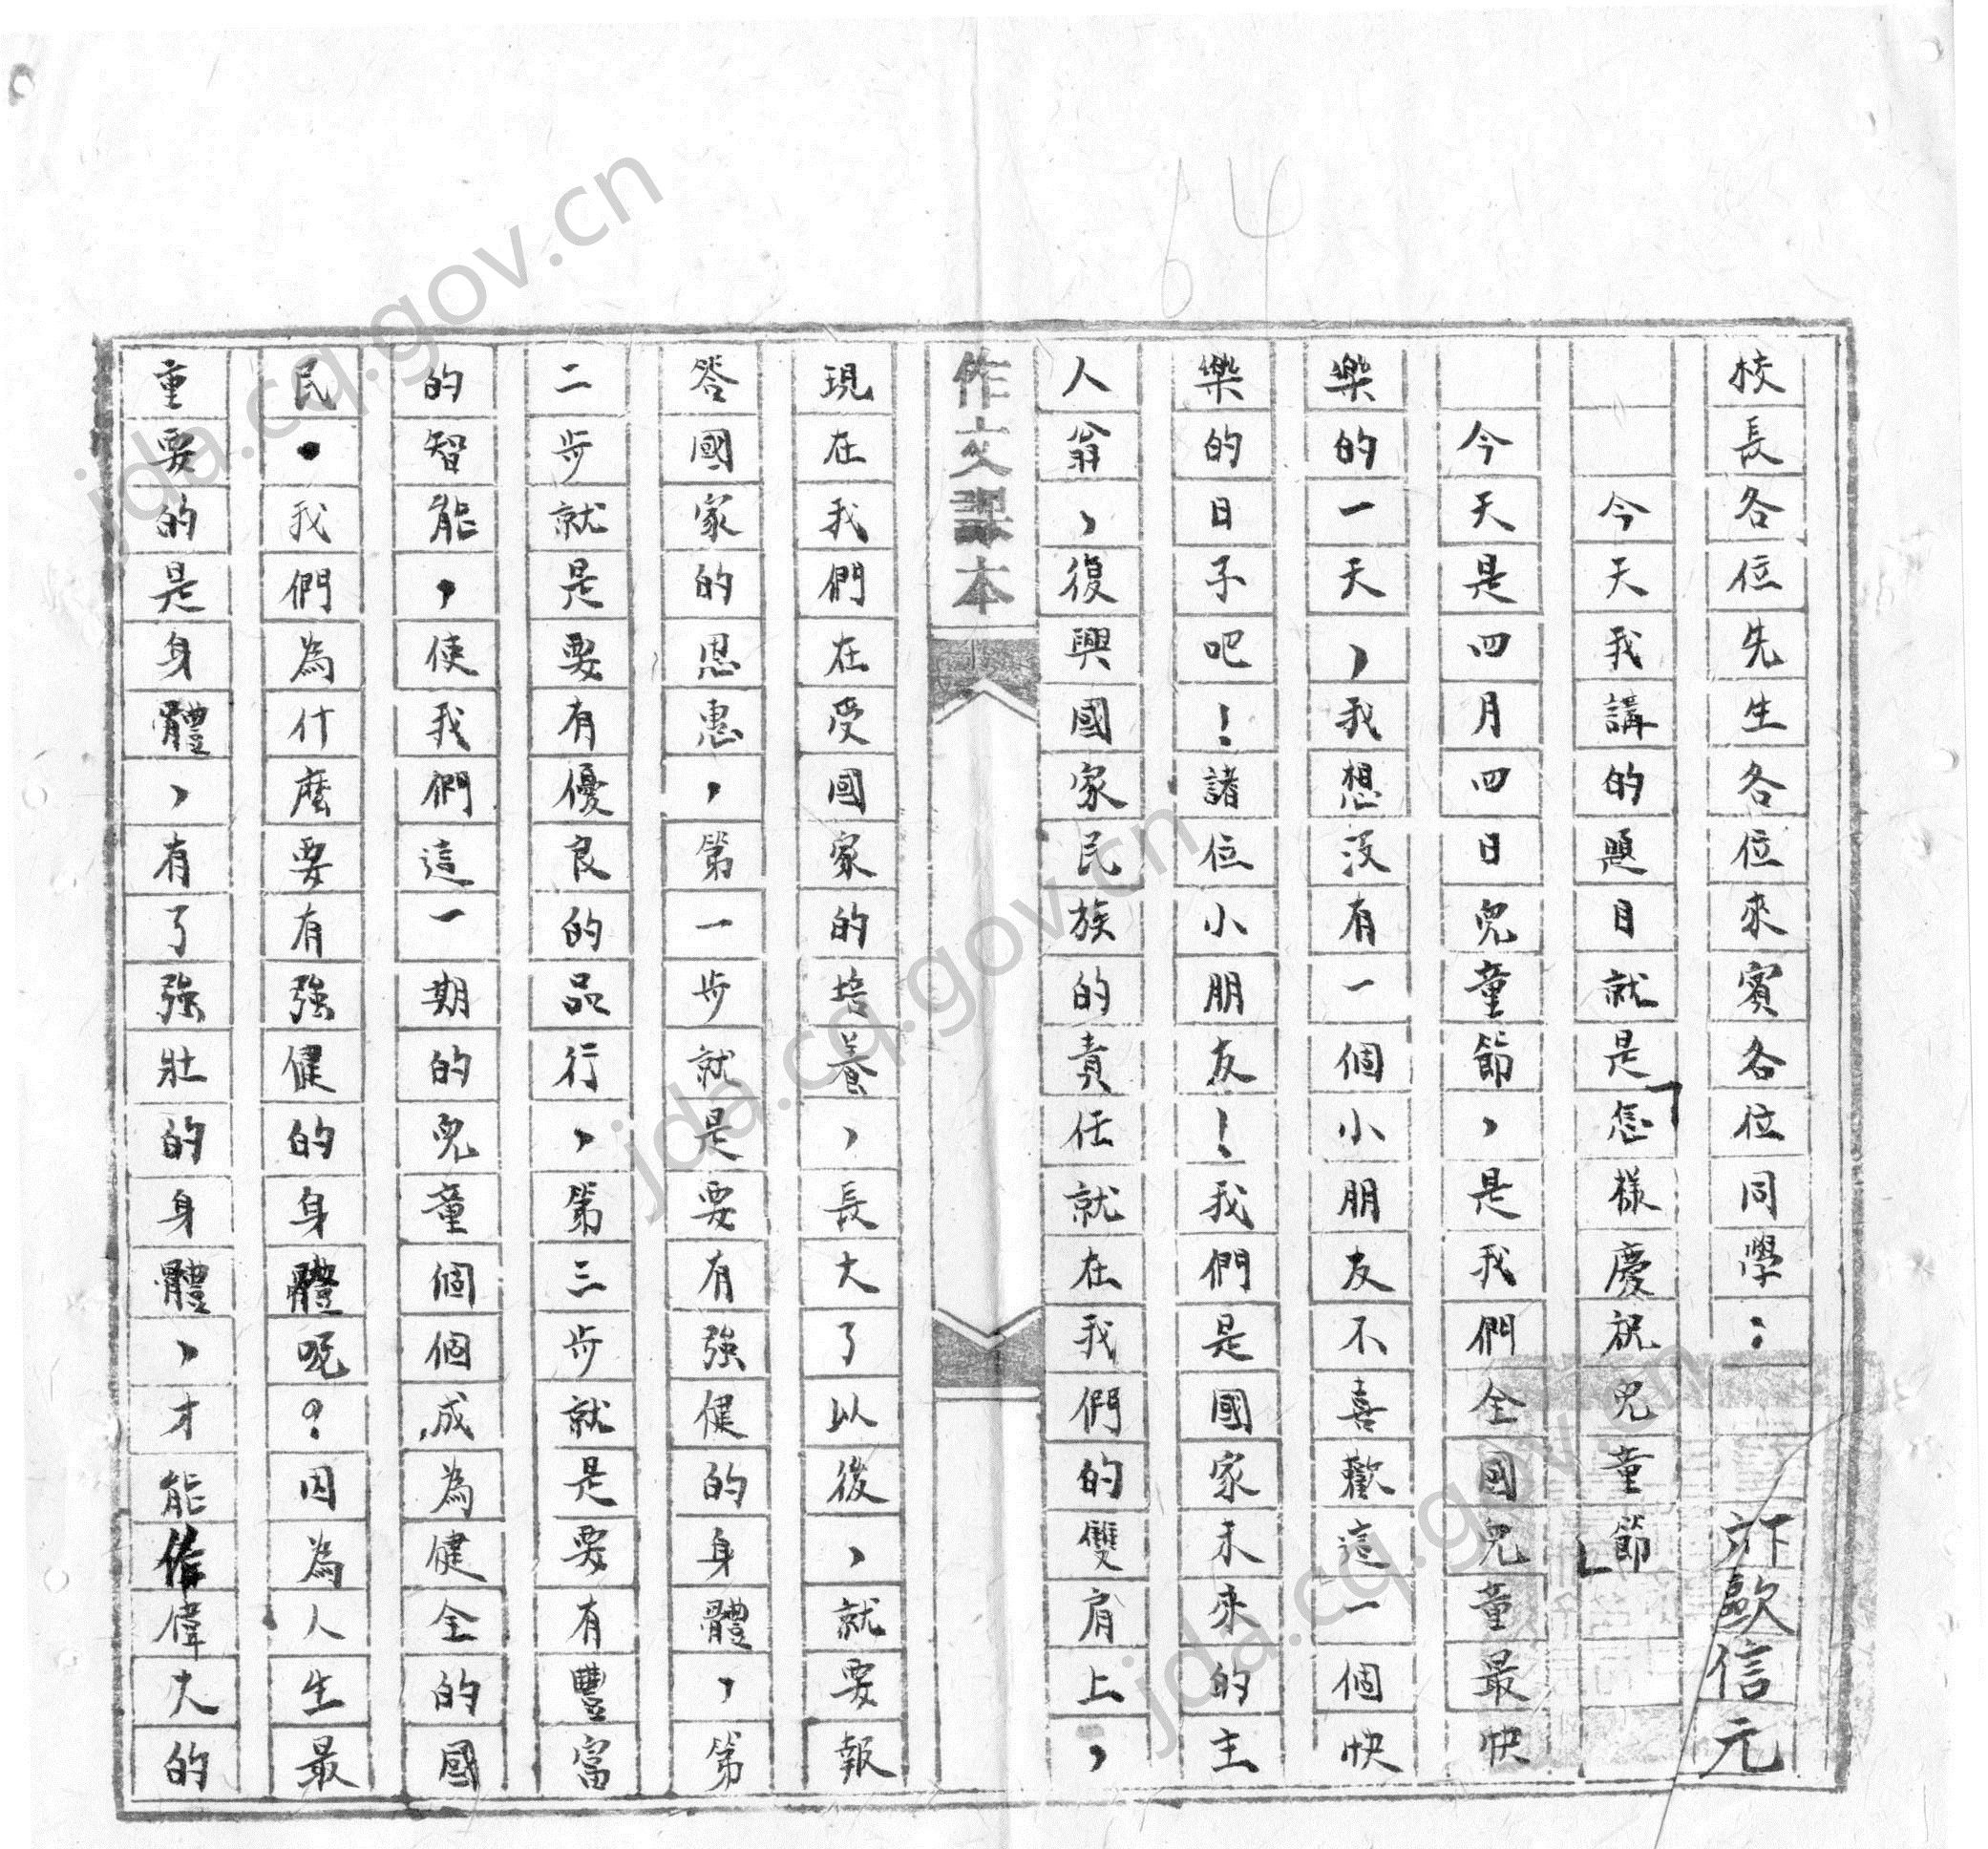 64
校長各位先生各位來賓各位同學：
歐信元
今天我講的題目就是「怎樣慶祝兒童節」
今天是四月四日兒童節，是我們全國兒童最快
樂的一天，我想沒有一個小朋友不喜歡這一個快
樂的日子吧！諸位小朋友！我們是國家未來的主
人翁，復興國家民族的責任就在我們的雙肩上，
作文課本
現在我們在受國家的培養，長大了以後，就要報
答國家的恩惠，第一步就是要有強健的身體，第
二步就是要有優良的品行，第三步就是要有豐富
的智能，使我們這一期的兒童個個成為健全的國
民．我們為什麼要有強健的身體呢？因為人生最
重要的是身體，有了強壯的身體，才能作偉大的
jda.cq.gov.cn
jda.cq.gov.cn
jda.cq.gov.cn